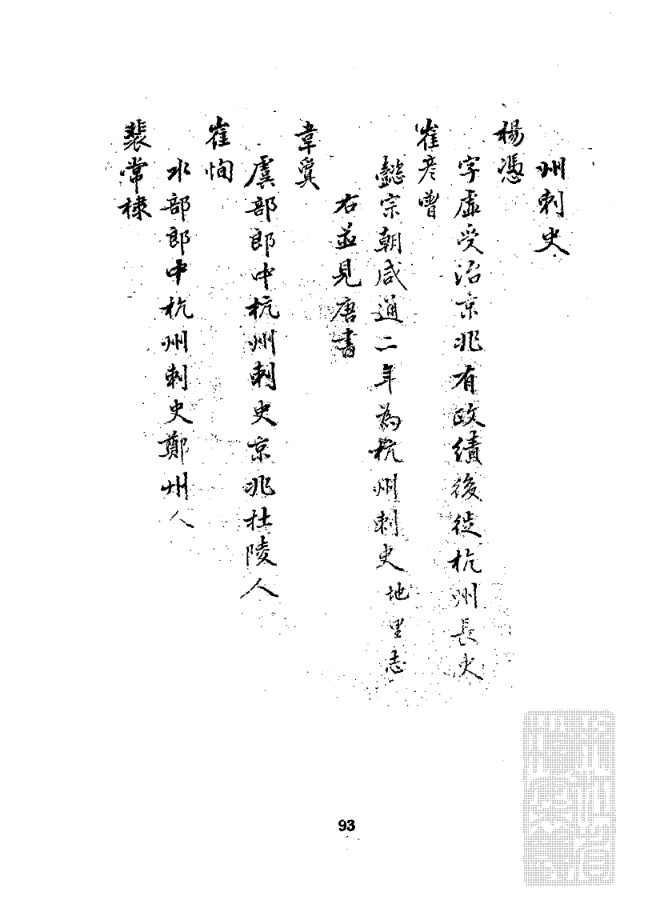 州刺史
楊憑
字虛受治京兆有政績後徙杭州長史
崔彦曾
懿宗朝咸通二年為杭州刺史地里志
右並見唐書
韋奠
虞部郎中杭州刺史京兆杜陵人
崔恂
水部郎中杭州刺史鄭州人
裴常棣
93